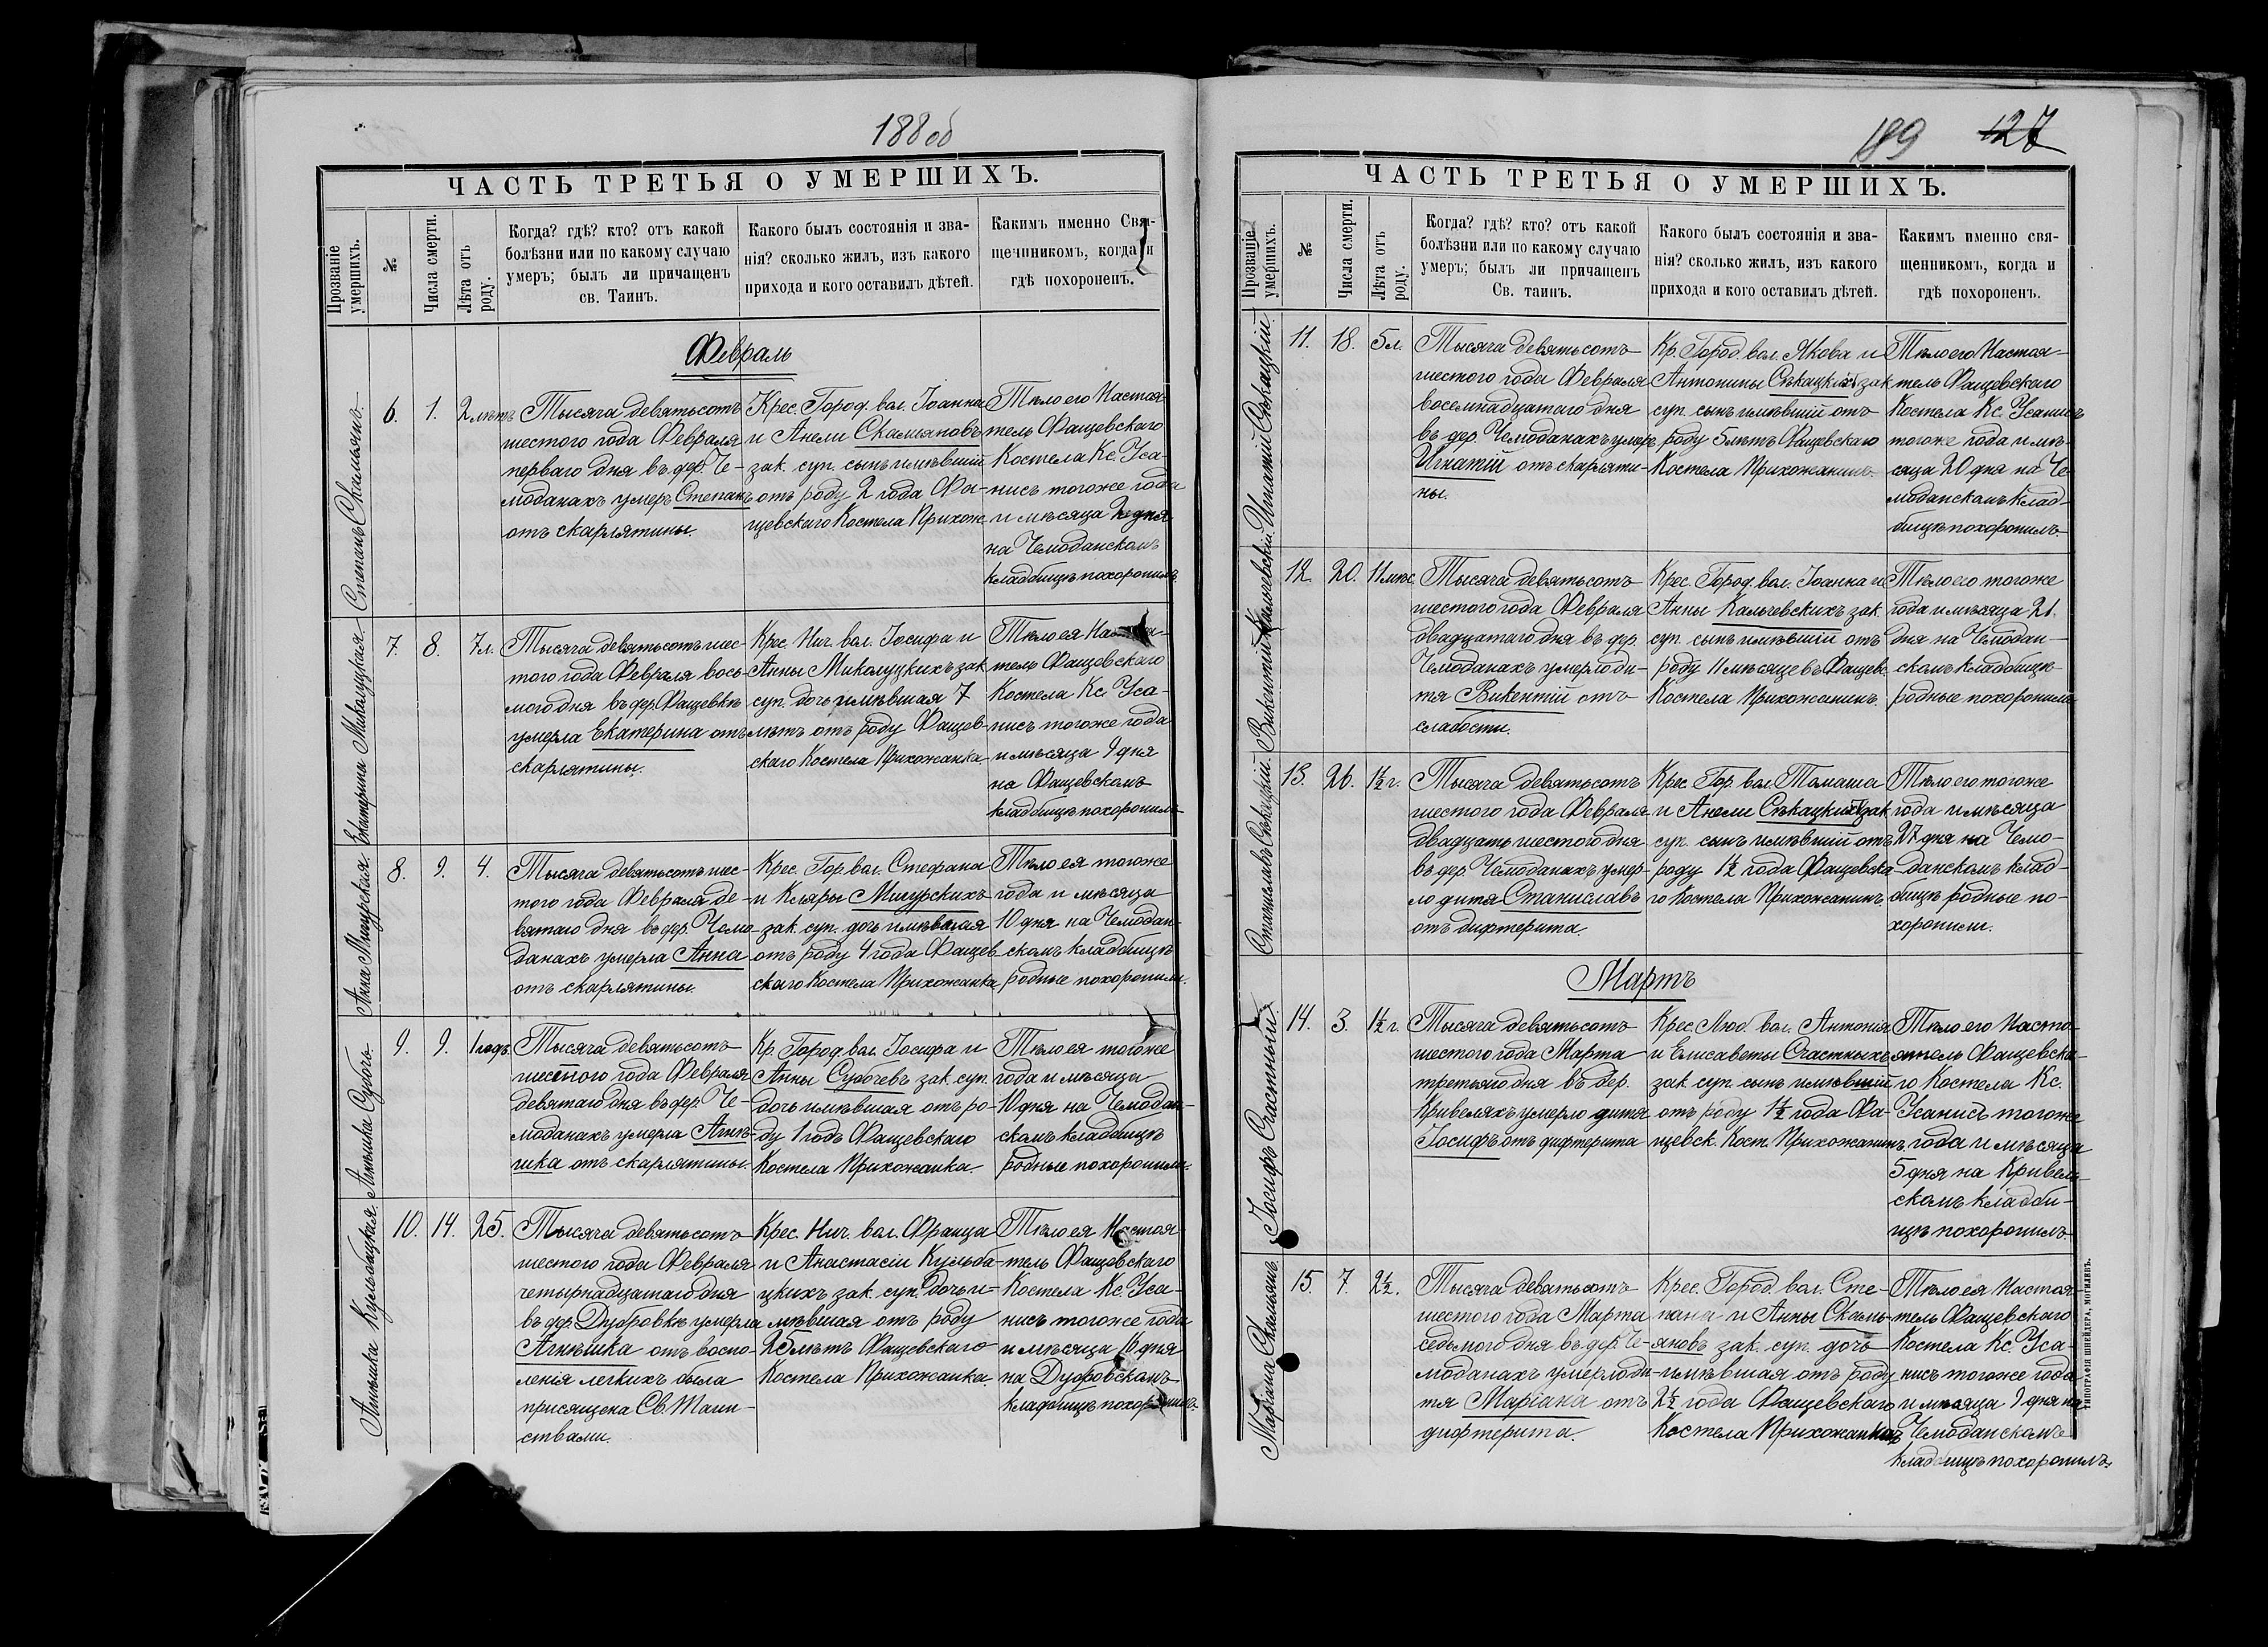 188 об
ЧАСТЬ ТРЕТЬЯ О УМЕРШИХЪ.
Прозваніе умершихъ.
№
Числа смерти.
Лѣта отъ роду.
Когда? гдѣ? кто? отъ какой
болѣзни или по какому случаю
умеръ; былъ ли причащенъ
св. Таинъ.
Какого былъ состоянія и зва-
нія? сколько жилъ, изъ какого
прихода и кого оставилъ дѣтей.
Какимъ именно Свя-
щенникомъ, когда и
гдѣ похороненъ.
Февраль
Степанъ Скамьянъ.
6.
1.
2 лѣтъ
Тысяча девятьсотъ
шестого года Февраля
перваго дня въ дер. Че-
моданахъ умеръ Степанъ
отъ скарлятины.
Крес. Город. вол. Іоанна
и Анели Скамьяновъ
зак. суп. сынъ имѣвшій
отъ роду 2 года Фа-
щевскаго Костела Прихож.
Тѣло его Настоя-
тель Фащевскаго
Костела Кс. Уса-
нисъ тогоже года
и мѣсяца 2 дня
на Чемоданскомъ
кладбищѣ похоронилъ.
Екатерина Миколуцкая.
7.
8.
7 л.
Тысяча девятьсотъ шес-
того года Февраля вось-
мого дня въ дер. Фащевкѣ
умерла Екатерина отъ
скарлятины.
Крес. Нич. вол. Іосифа и
Анны Миколуцкихъ зак.
суп. дочь имѣвшая 7
лѣтъ отъ роду Фащев-
скаго Костела Прихожанка
Тѣло ея Настоя-
тель Фащевскаго
Костела Кс. Уса-
нисъ тогоже года
и мѣсяца 9 дня
на Фащевскомъ
кладбищѣ похоронилъ
Анна Мигурская.
8.
9.
4.
Тысяча девятьсотъ шес-
того года Февраля де-
вятаго дня въ дер. Чемо-
данахъ умерла Анна
отъ скарлятины.
Крес. Гор. вол. Стефана
и Кляры Мигурскихъ
зак. суп. дочь имѣвшая
отъ роду 4 года Фащев-
скаго Костела Прихожанка.
Тѣло ея тогоже
года и мѣсяца
10 дня на Чемодан-
скомъ кладбищѣ
родные похоронили.
Агнѣшка Субочъ.
9.
9.
1 годъ.
Тысяча девятьсотъ
шестого года Февраля
девятаго дня въ дер. Че-
моданахъ умерла Агнѣ-
шка отъ скарлятины.
Кр. Город. вол. Іосифа и
Анны Субочевъ зак. суп.
дочь имѣвшая отъ ро-
ду 1 годъ Фащевскаго
Костела Прихожанка.
Тѣло ея тогоже
года и мѣсяца
10 дня на Чемодан-
скомъ кладбищѣ
родные похоронили.
Агнѣшка Кульбацкая.
10.
14.
25.
Тысяча девятьсотъ
шестого года Февраля
четырнадцатаго дня
въ дер. Дубровкѣ умерла
Агнѣшка отъ воспо-
ленія легкихъ была
присящена Св. Таин-
ствами.
Крес. Нич. вол. Франца
и Анастасіи Кульба-
цкихъ зак. суп. дочь и-
мѣвшая отъ роду
25 лѣтъ Фащевскаго
Костела Прихожанка.
Тѣло ея Настоя-
тель Фащевскаго
Костела Кс. Уса-
нисъ тогоже года
и мѣсяца 16 дня
на Дубровскомъ
кладбищѣ похоронилъ.
189 127
ЧАСТЬ ТРЕТЬЯ О УМЕРШИХЪ.
Прозваніе умершихъ.
№
Числа смерти.
Лѣта отъ роду.
Когда? гдѣ? кто? отъ какой
болѣзни или по какому случаю
умеръ; былъ ли причащенъ
Св. таинъ.
Какого былъ состоянія и зва-
нія? сколько жилъ, изъ какого
прихода и кого оставилъ дѣтей.
Какимъ именно свя-
щенникомъ, когда и
гдѣ похороненъ.
Игнатій Сѣкацкій.
11.
18.
5 л.
Тысяча девятьсотъ
шестого года Февраля
восемнадцатаго дня
въ дер. Чемоданахъ умеръ
Игнатій отъ скарляти-
ны.
Кр. Город. вол. Якова и
Антонины Сѣкацкихъ зак
суп. сынъ имѣвшій отъ
роду 5 лѣтъ Фащевскаго
Костела Прихожанинъ.
Тѣло его Настоя-
тель Фащевскаго
Костела Кс. Усанисъ
тогоже года и мѣ-
сяца 20 дня на Че-
моданскомъ клад-
бищѣ похоронилъ.
Викентій Калчевскій.
12.
20.
11 мѣс.
Тысяча девятьсотъ
шестого года Февраля
двадцатаго дня въ дер.
Чемоданахъ умерло ди-
тя Викентій отъ
слабости.
Крес. Город. вол. Іоанна и
Анны Калчевскихъ зак.
суп. сынъ имѣвшій отъ
роду 11 мѣсяцевъ Фащевс.
Костела Прихожанинъ.
Тѣло его тогоже
года и мѣсяца 21.
дня на Чемодан-
скомъ кладбищѣ
родные похоронили
Станиславъ Сѣкацкій.
13.
26.
1½ г.
Тысяча девятьсотъ
шестого года Февраля
двадцать шестого дня
въ дер. Чемоданахъ умер-
ло дитя Станиславъ
отъ дифтерита.
Крес. Гор. вол. Томаша
и Анели Сѣкацкихъ зак
суп. сынъ имѣвшій отъ
роду 1½ года Фащевска-
го Костела Прихожанинъ.
Тѣло его тогоже
года и мѣсяца
27 дня на Чемо-
данскомъ клад-
бищѣ родные по-
хоронили.
Мартъ
Іосифъ Счастный.
14.
3.
1½ г.
Тысяча девятьсотъ
шестого года Марта
третьяго дня въ дер.
Кривеляхъ умерло дитя
Іосифъ отъ дифтерита
Крес. Люб. вол. Антонія
и Елисаветы Счастныхъ
зак. суп. сынъ имѣвшій
отъ роду 1½ года Фа-
щевск. Кост. Прихожанинъ.
Тѣло его Насто-
ятель Фащевска-
го Костела Кс.
Усанисъ тогоже
года и мѣсяца
5 дня на Кривель-
скомъ кладби-
щѣ похоронилъ
Маріана Скамьянъ.
15.
7.
2½.
Тысяча девятьсотъ
шестого года Марта
седьмого дня въ дер. Че-
моданахъ умерло ди-
тя Маріана отъ
дифтерита.
Крес. Город. вол. Сте-
пана и Анны Скамь-
яновъ зак. суп. дочь
имѣвшая отъ роду
2½ года Фащевскаго
Костела Прихожанка
Тѣло ея Настоя-
тель Фащевскаго
Костела Кс. Уса-
нисъ тогоже года
и мѣсяца 9 дня на
Чемоданскомъ
кладбищѣ похоронилъ.
ТИПОГРАФІЯ ШНЕЙДЕРА, МОГИЛЕВЪ.